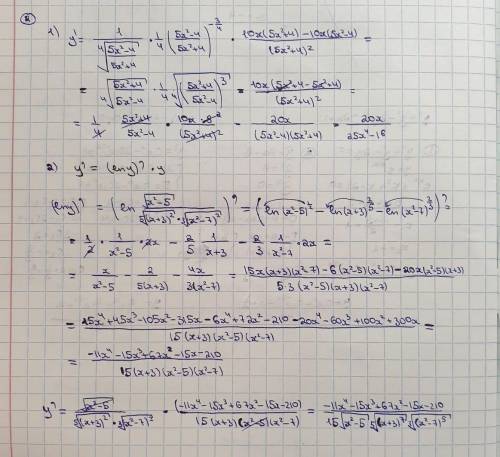 ②
1) y' = 1/∜((5x²-4)/(5x²+4)) · 1/4 ((5x²-4)/(5x²+4))^(-3/4) · (10x(5x²+4) - 10x(5x²-4))/(5x²+4)² =
= ∜((5x²+4)/(5x²-4)) · 1/4 ∜(((5x²+4)/(5x²-4))³) · (10x(5x²+4-5x²+4))/(5x²+4)² =
= 1/4 · (5x²+4)/(5x²-4) · (10x·8²)/(5x²+4)² = 20x/((5x²-4)(5x²+4)) = 20x/(25x⁴-16)
2) y' = (lny)' · y
(lny)' = (ln √(x²-5)/(⁵√(x+3)² · ³√(x²-7)²))' = (ln(x²-5)^(1/2) - ln(x+3)^(2/5) - ln(x²-7)^(2/3))' =
= 1/2 · 1/(x²-5) · 2x - 2/5 · 1/(x+3) - 2/3 · 1/(x²-7) · 2x =
= x/(x²-5) - 2/(5(x+3)) - 4x/(3(x²-7)) = (15x(x+3)(x²-7) - 6(x²-5)(x²-7) - 20x(x²-5)(x+3))/(5·3(x²-5)(x+3)(x²-7)) =
= (15x⁴+45x³-105x²-315x-6x⁴+72x²-210-20x⁴-60x³+100x²+300x)/(15(x+3)(x²-5)(x²-7)) =
= (-11x⁴-15x³+67x²-15x-210)/(15(x+3)(x²-5)(x²-7))
y' = √(x²-5)/(⁵√(x+3)² · ³√(x²-7)²) · (-11x⁴-15x³+67x²-15x-210)/(15(x+3)(x²-5)(x²-7)) = (-11x⁴-15x³+67x²-15x-210)/(15√(x²-5) ⁵√(x+3)⁷ ³√(x²-7)⁵)